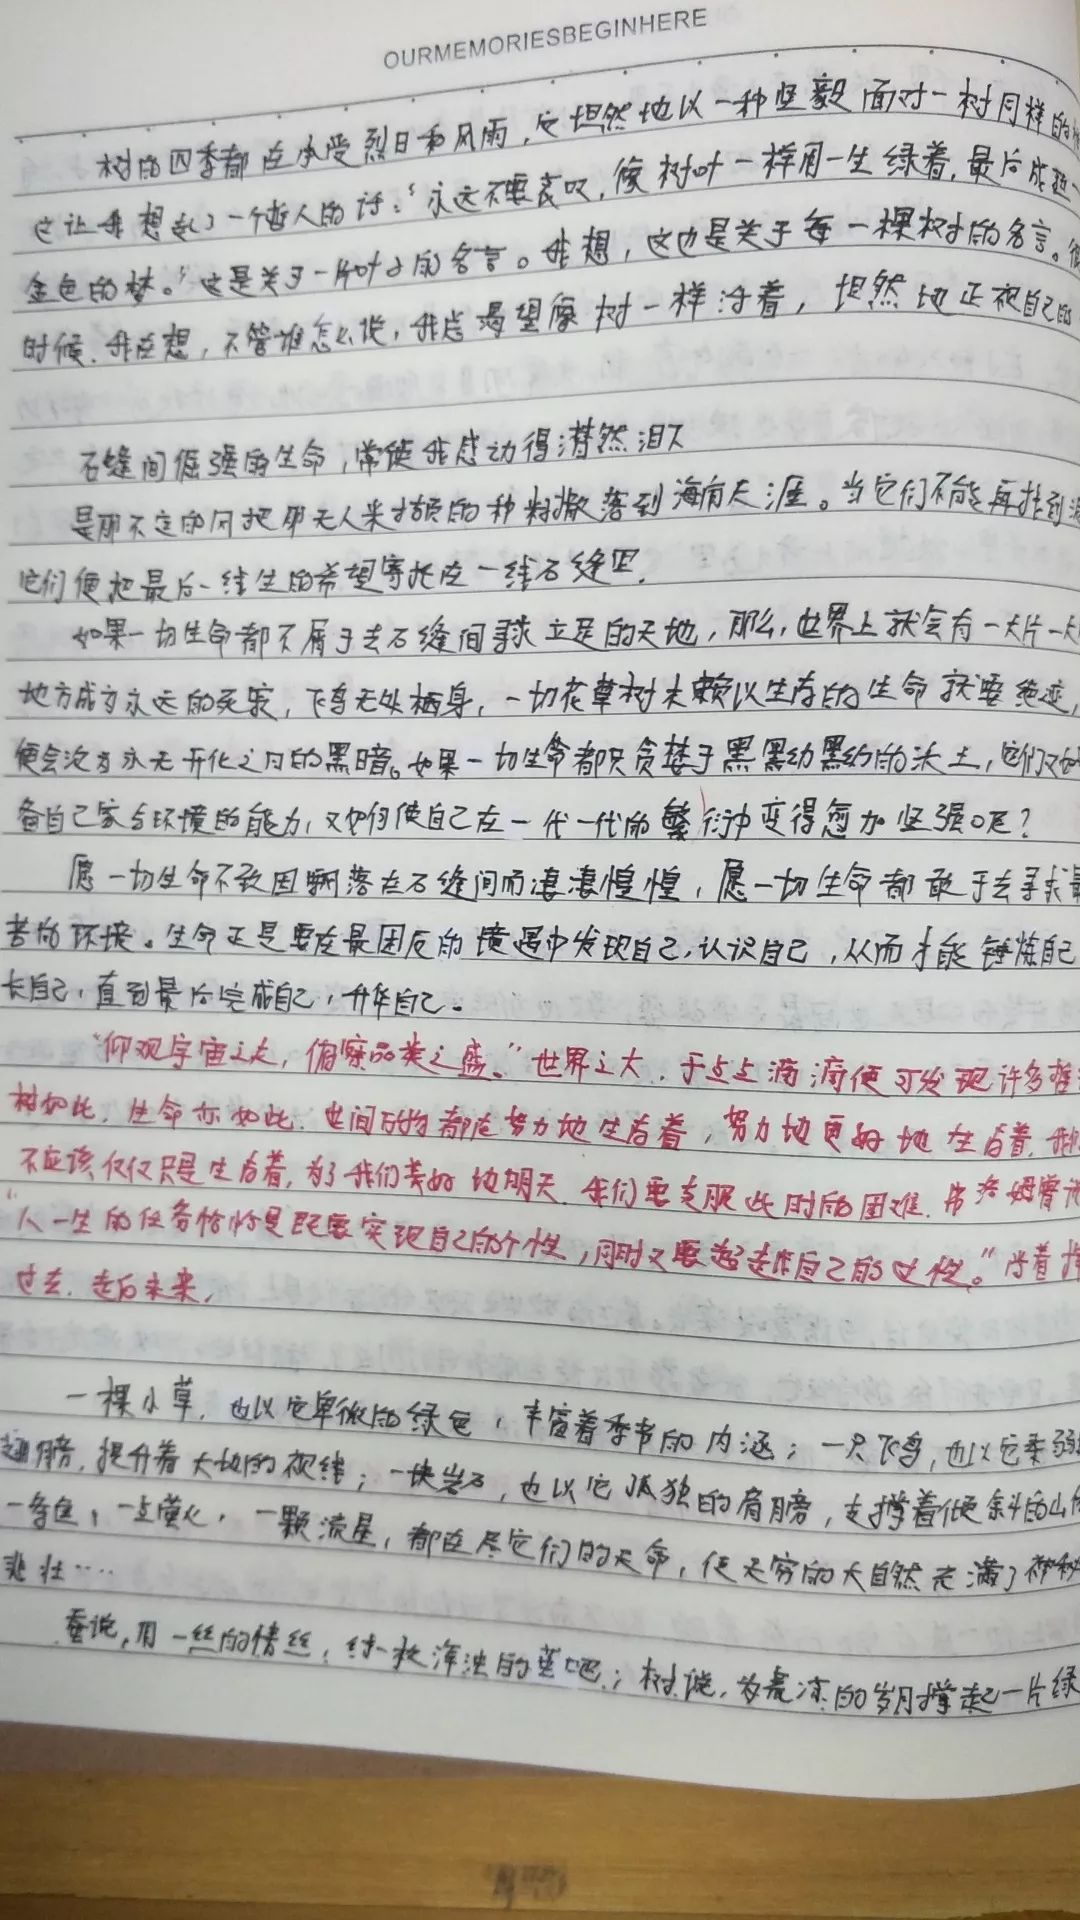 OURMEMORIESBEGINHERE
树的四季都在承受烈日和风雨，它坦然地以一种坚毅面对一树同样的
这让我想起了一个哲人的话：“永远不要哀叹，像树叶一样用一生绿着，最后成
金色的梦。”这是关于一片叶子的名言。我想，这也是关于每一棵树的名言。
时候，我在想，不管谁怎么说，我总渴望像树一样活着，坦然地正视自己的
石缝间倔强的生命，常使我感动得潸然泪下
是那不定的风把那无人采撷的种籽撒落到海角天涯。当它们不能再找到
它们便把最后一线生的希望寄托在一线石缝里.
如果一切生命都不屑于去石缝间寻求立足的天地，那么，世界上就会有一大片一大
地方成为永远的死寂，飞鸟无处栖身，一切花草树木赖以生存的生命就要绝迹，
便会沦为永无开化之日的黑暗。如果一切生命都只贪婪于黑黑黝黝的沃土，它们又如
备自己家与环境的能力，又如何使自己在一代一代的繁衍中变得愈加坚强呢？
愿一切生命不致因飘落在石缝间而凄凄惶惶，愿一切生命都敢于去寻求最
苦的环境。生命正是要在最困厄的境遇中发现自己，认识自己，从而才能锤炼自己
长自己，直到最后完成自己，升华自己。
“仰观宇宙之大，俯察品类之盛。”世界之大，于点点滴滴便可发现许多哲
树如此，生命亦如此，世间万物都在努力地生存着，努力地更好地生存着，我们
不应该仅仅只是生存着，为了我们美好地明天，我们要克服此时的困难，弗洛姆曾说
“人一生的任务恰恰是既要实现自己的个性，同时又要超越自己的个性。”
过去，走向未来，
一棵小草，也以它卑微的绿色，丰富着季节的内涵；一只飞鸟，也以它柔弱
翅膀，提升着大地的视线；一块岩石，也以它孤独的肩膀，支撑着倾斜的山
一点萤火，一颗流星，都在尽它们的天命，使无穷的大自然充满了神秘
悲壮……
蚕说，用一丝的情丝，结一枚浑浊的茧吧；树说，为荒凉的岁月撑起一片绿